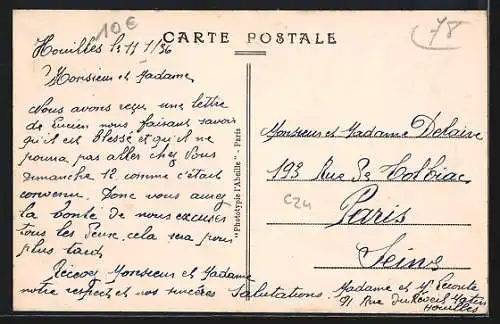 10€
CARTE POSTALE
78
Houilles le 11 1/36
Monsieur et Madame
Nous avons reçu une lettre
de Lucien nous faisant savoir
qu'il est blessé et qu'il ne
pourra pas aller chez Vous
Dimanche 12 comme c'était
convenu. Donc vous aurez
la bonté de nous excuser
tous les Deux, cela sera pour
plus tard
Recevez Monsieur et Madame
notre respect et nos sincères Salutations.
"Phototypie l'Abeille" - Paris
Monsieur et Madame Delaire
193 Rue de Tolbiac
C24
Paris
Seine
Madame et Mr Lecomte
91 Rue du Réveil Matin
Houilles